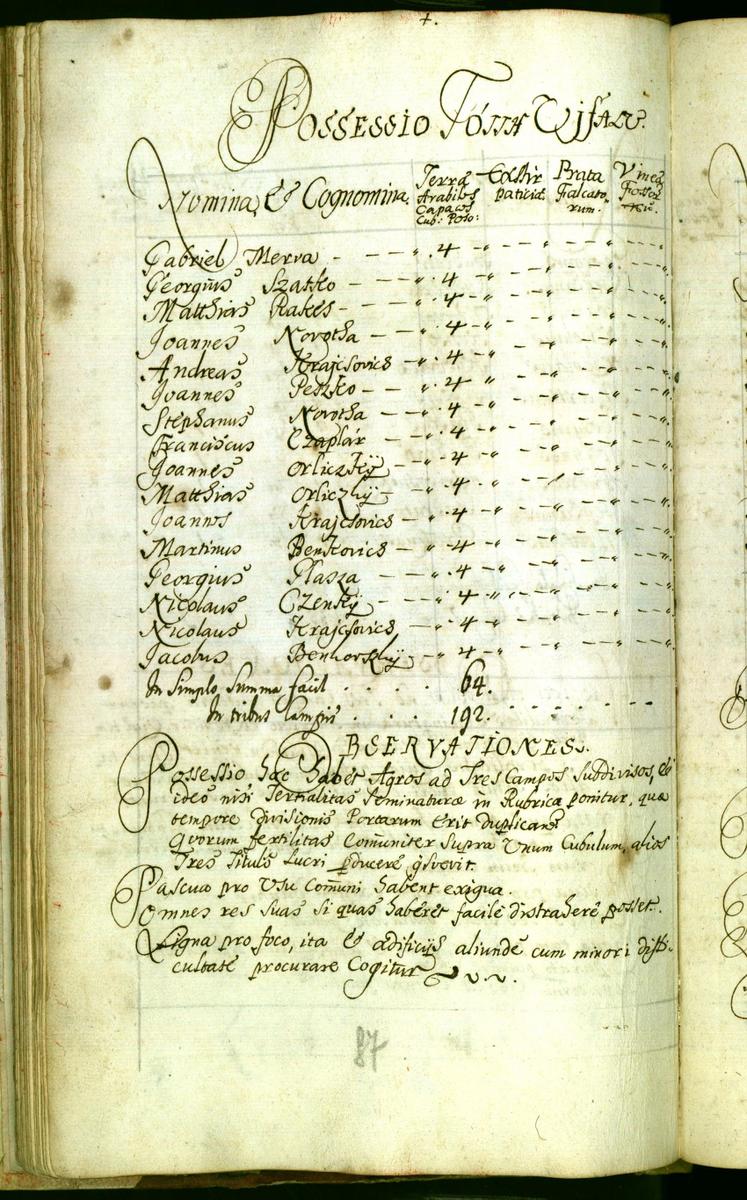 4.
Possessio Tótth Ujfalu.
Nomina, & Cognomina.
Terræ Arabiles Capaces Cub: Poso:
Exstirpaticiæ.
Prata Falcatorum.
Vineæ
Gabriel Merva - - " . 4 - - " - - " - - " - - "
Georgius Szatko - - " . 4 - " - - " - - " - - "
Matthias Rakes - - " . 4 - " - - " - - " - - "
Joannes Novotha - - " . 4 - " - - " - - " - - "
Andreas Krajcsovics - " . 4 - " - - " - - " - - "
Joannes Peszko - - " . 4 " - - " - - " - - "
Stephanus Novotha - - " . 4 - " - - " - - " - - "
Franciscus Czaplár - - " . 4 - " - - " - - " - - "
Joannes Orliczkÿ - - " . 4 - " - - " - - " - - "
Matthias Orliczkÿ - - " . 4 - " - - " - - " - - "
Joannes Krajcsovics - " . 4 - " - - " - - " - - "
Martinus Benkovics - " . 4 - " - - " - - " - - "
Georgius Plasza - - " . 4 - " - - " - - " - - "
Nicolaus Czenkÿ - - " . 4 - " - - " - - " - - "
Nicolaus Krajcsovics - " . 4 - " - - " - - " - - "
Jacobus Benkovszkÿ - " 4 - " - - " - - " - - "
In Simplo, Summa facit . . . . 64.
In tribus Campis . . . . 192. . . . .
OBSERVATIONES.
Possessio hæc habet Agros ad Tres Campos Subdivisos, &
ideo nisi Tertialitas Seminaturæ in Rubrica ponitur, quæ
tempore Divisionis Portarum erit Duplicanda
Quorum fertilitas Com̄uniter Supra Unum Cubulum, alios
Tres Titulo Lucri producere consvevit.
Pascua pro Usu Com̄uni habent exigua.
Omnes res suas si quas haberet facile distrahere posset.
Ligna pro foco, ita & ædificijs aliunde cum minori diffi-
cultate procurare Cogitur
87